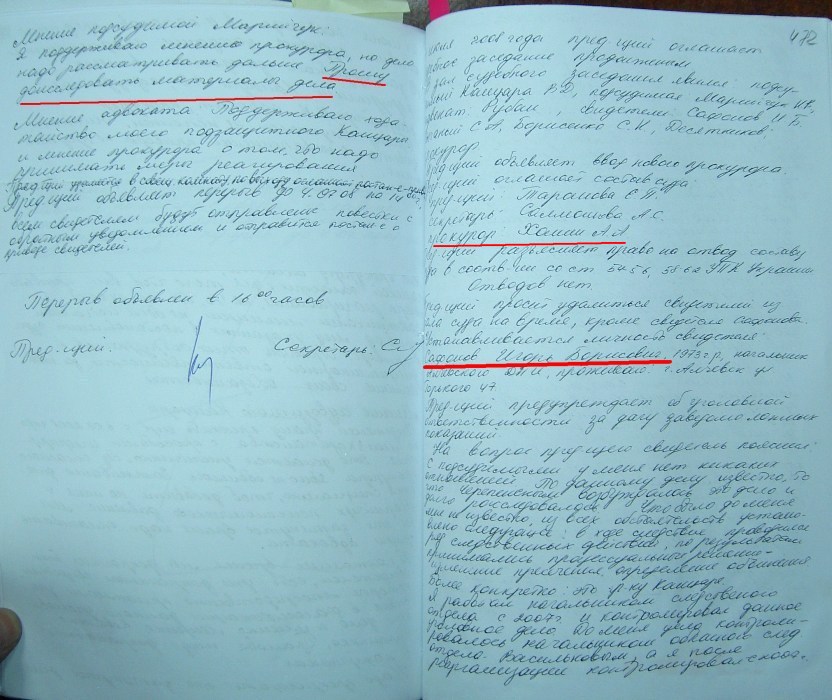 Мнение подсудимой Марийчук:
Я поддерживаю мнение прокурора, но дело
надо рассматривать дальше. Прошу
дослідовать материалы дела.
Мнение адвоката Поддерживаю хода-
тайство моего подзащитного Кашуара
и мнение прокурора о том, что надо
принимать меры реагирования
Пред-щий
Пред-щий объявляет перерыв до 4.07.08 на 14 00,
всем свидетелям будут отправлены повестки с
обратным уведомлением и отправится постан-е о
приводе свидетелей.
Перерыв объявлен в 16 00 часов
Пред-щий: Секретарь:
472
2008 года пред-щий оглашает
заседание продолженным
зал судебного заседания явился подсу-
подсудимая Марийчук
адвокат Рубан, свидетели Сафонов И.Б.
Борисенко С.Н., Десятников,
прокурор
пред-щий объявляет ввод нового прокурора.
пред-щий оглашает состав суда:
пред-щий: Таранова Е.П.
секретарь: А.С.
прокурор: Ханин А.А
пред-щий разъясняет право на отвод составу
в соотв-ии со ст 54 56, УПК Украины
Отводов нет.
пред-щий просит удалиться свидетелей из
зала суда на время, кроме свидетеля Сафонова.
Устанавливается личность свидетеля:
Сафонов Игорь Борисович, 1973 г.р, начальник
проживающ: г. Алчевск ул
Горького 47
Пред-щий предупреждает об уголовной
ответственности за дачу заведомо ложных
показаний
На вопрос пред-щего свидетель пояснил:
С подсудимыми у меня нет никаких
отношений По данному делу известно, то
что возбуждалось это дело и
долго расследовалось. Что было до меня
мне не известно, из всех обстоятельств устано-
влено следующее: в ходе следствия проводился
ряд следственных действий, по результатам
принимались процессуальные решения-
изменение пресечения, определение обвинения
более конкретно: это гр-ку Кашуаре.
Я работал начальником следственого
отдела с 2007г и контролировал данное
уголовное дело До меня дело контроли-
ровалось начальником областного след
отдела Васильковым, а я после
реорганизации контролировал